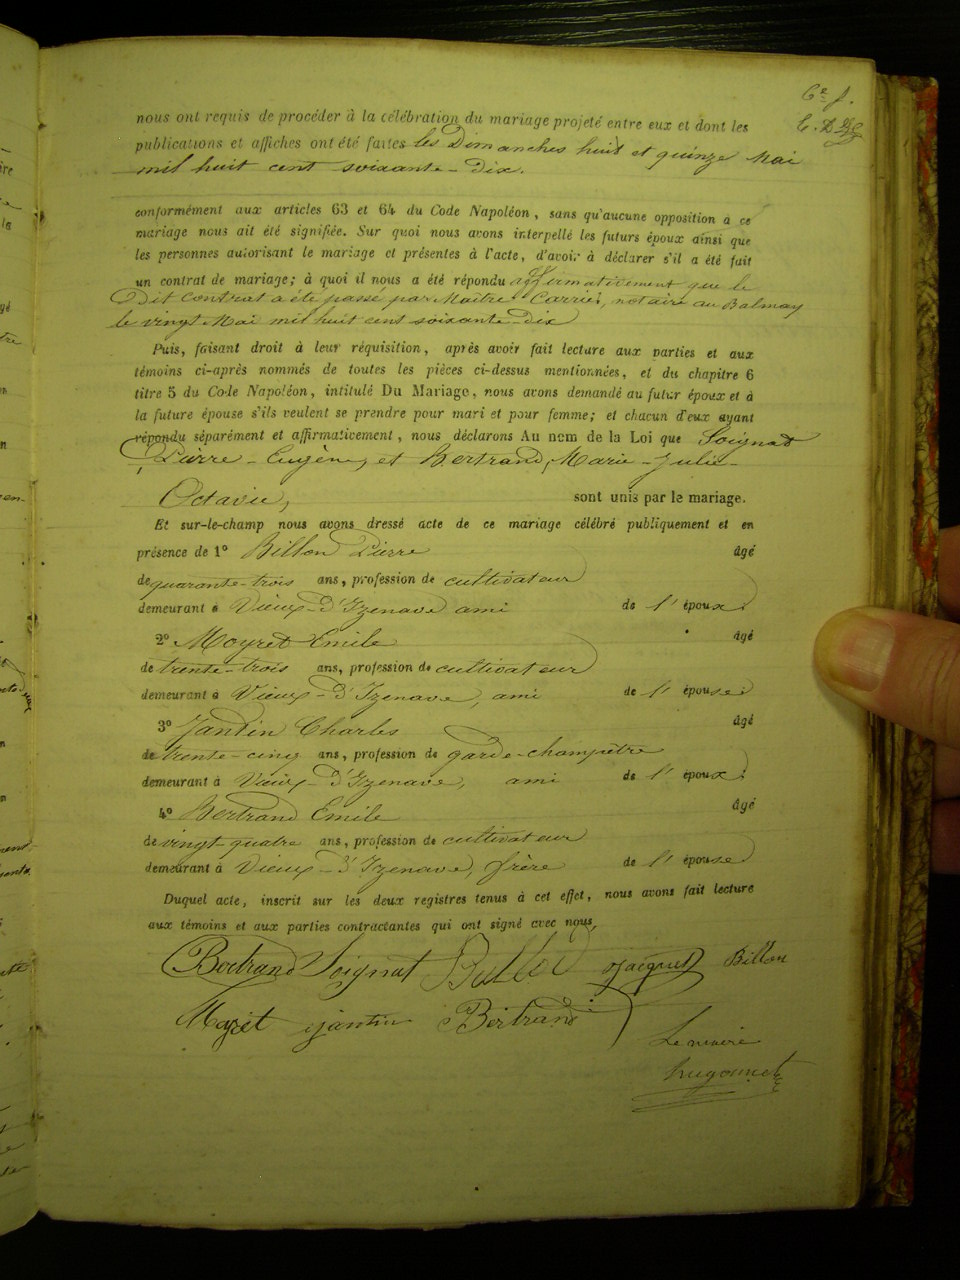 6e f.
nous ont requis de procéder à la célébration du mariage projeté entre eux et dont les
publications et affiches ont été faites les Dimanches huit et quinze Mai
mil huit cent soixante-dix.
conformément aux articles 63 et 64 du Code Napoléon, sans qu'aucune opposition à ce
mariage nous ait été signifiée. Sur quoi nous avons interpellé les futurs époux ainsi que
les personnes autorisant le mariage et présentes à l'acte, d'avoir à déclarer s'il a été fait
un contrat de mariage; à quoi il nous a été répondu affirmativement que le
Dit contrat a été passé par Maître Carrier, notaire au Balmay
le vingt Mai mil huit cent soixante-dix
Puis, faisant droit à leur réquisition, après avoir fait lecture aux parties et aux
témoins ci-après nommés de toutes les pièces ci-dessus mentionnées, et du chapitre 6
titre 5 du Code Napoléon, intitulé Du Mariage, nous avons demandé au futur époux et à
la future épouse s'ils veulent se prendre pour mari et pour femme; et chacun d'eux ayant
répondu séparément et affirmativement, nous déclarons Au nom de la Loi que Soignat
Pierre-Eugène, et Bertrand, Marie-Julie-
Octavie, sont unis par le mariage.
Et sur-le-champ nous avons dressé acte de ce mariage célébré publiquement et en
présence de 1° Billon Pierre âgé
de quarante-trois ans, profession de cultivateur
demeurant à Vieux-d'Izenave ami de l'époux.
2° Moyret Emile âgé
de trente-trois ans, profession de cultivateur
demeurant à Vieux-d'Izenave, ami de l'épouse
3° Jantin Charles âgé
de trente-cinq ans, profession de garde-champêtre
demeurant à Vieux-d'Izenave, ami de l'époux;
4° Bertrand Emile âgé
de vingt-quatre ans, profession de cultivateur
demeurant à Vieux-d'Izenave, frère de l'épouse
Duquel acte, inscrit sur les deux registres tenus à cet effet, nous avons fait lecture
aux témoins et aux parties contractantes qui ont signé avec nous,
Bertrand Soignat Jacquet Billon
Moyret jantin Bertrand
Le maire
hugonnet